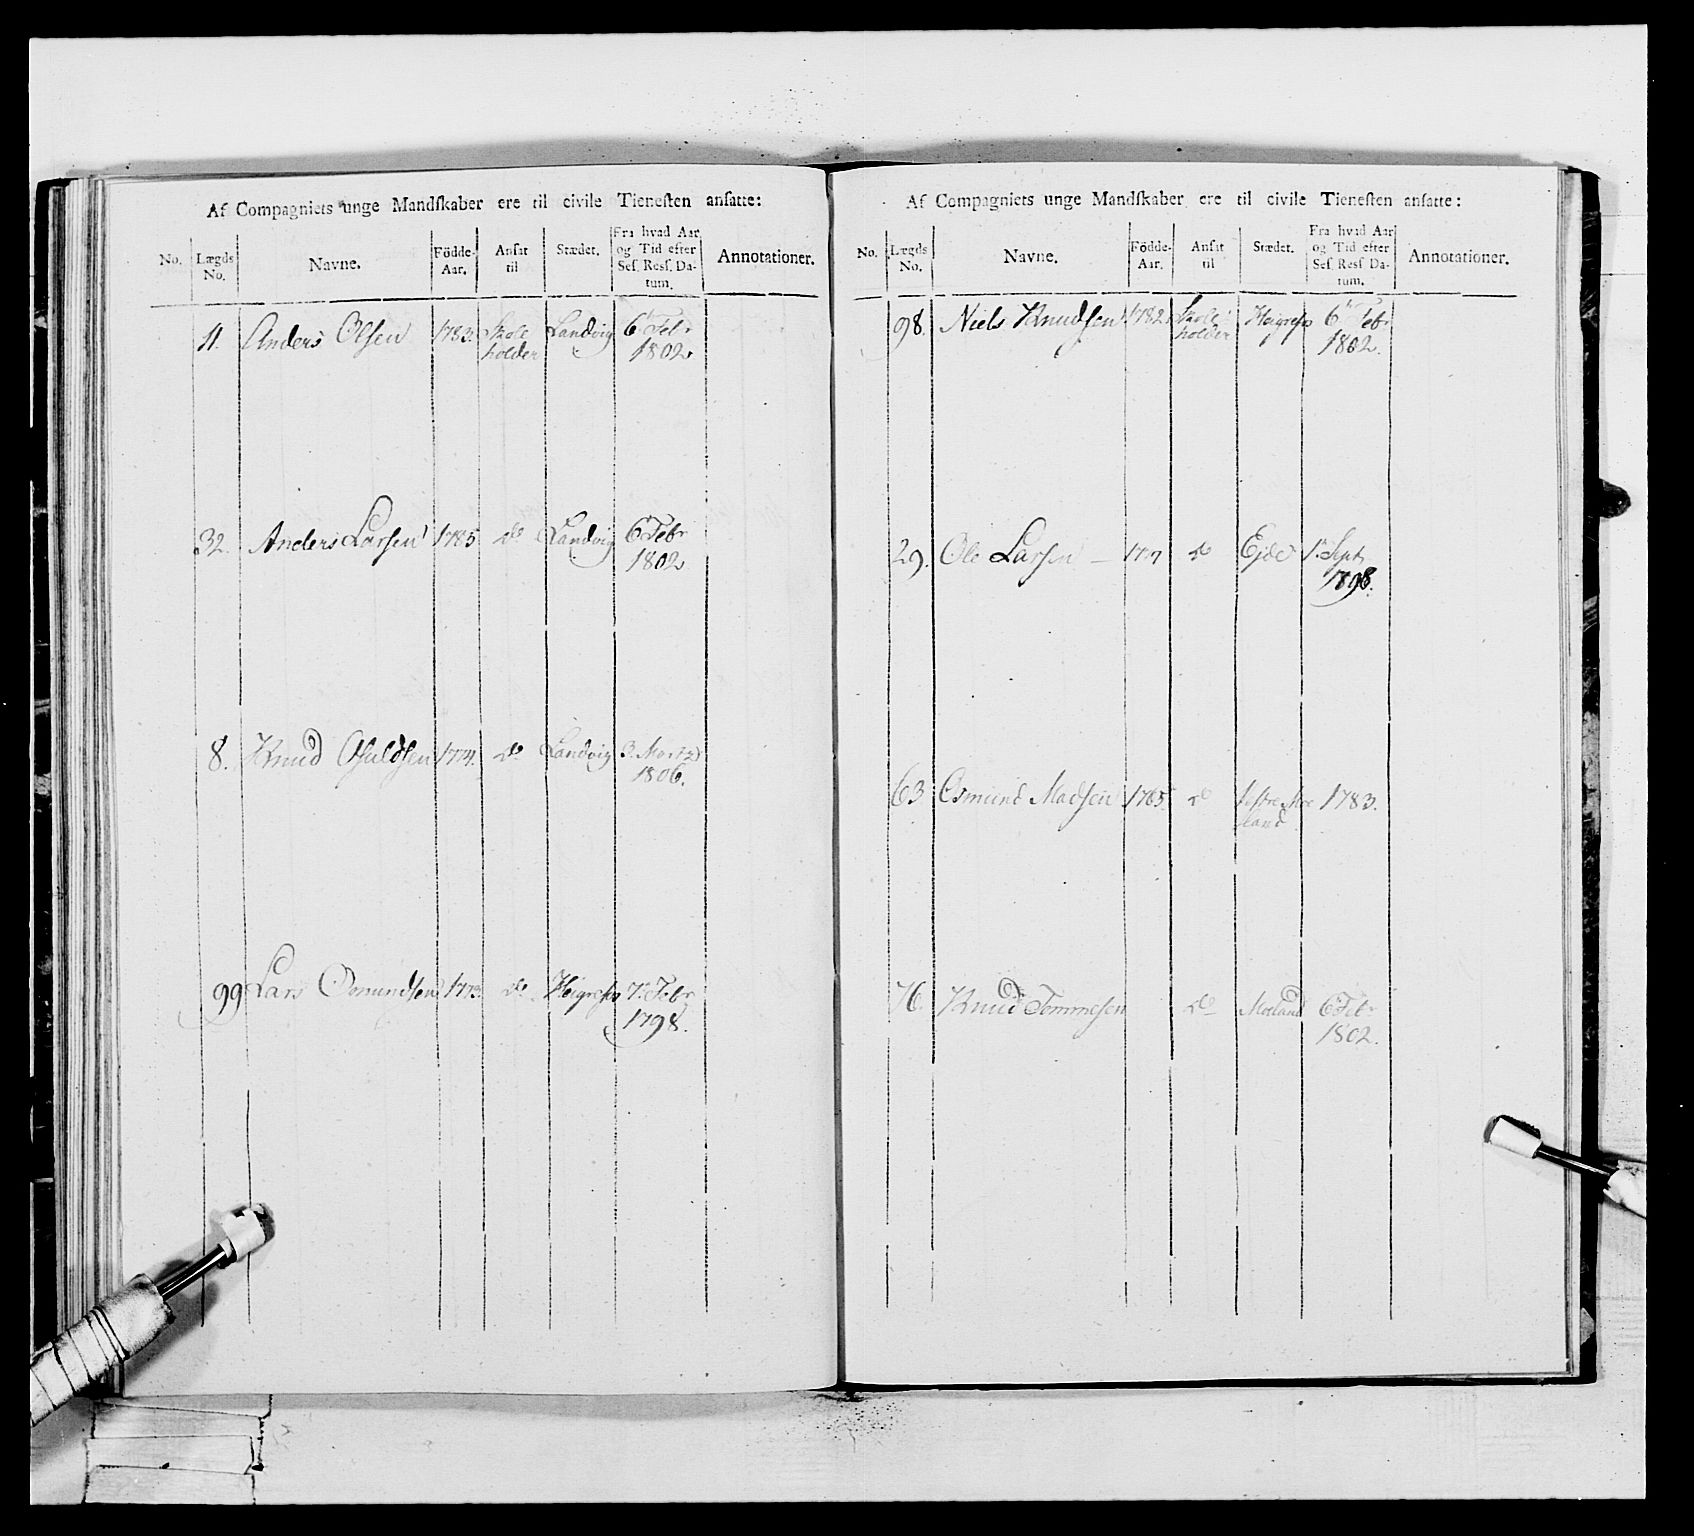 Af Compagniets unge Mandſkaber ere til civile Tieneſten anſatte:
No. Lægds No. Navne. Födde-Aar. Anſat til Stædet. Fra hvad Aar og Tid efter Seſ. Reſſ. Datum. Annotationer.
11. Anders Olsen 1783. Skole Landvig 6 Febr
holder 1802
32. Anders Larsen 1785 do Landvig 6 Febr
1802
8. Knud 1774. do Landvig 3. Martz
1806.
99 Lars Osmundsen 1773. do 7. Febr
1798.
Af Compagniets unge Mandſkaber ere til civile Tieneſten anſatte:
No. Lægds No. Navne. Födde-Aar. Anſat til Stædet. Fra hvad Aar og Tid efter Seſ. Reſſ. Datum. Annotationer.
98. Niels Knudsen 1782. Skole 6 Febr
holder 1802.
29. Ole Larsen — do Ejde 1. Sept
1798.
63 Osmund Madsen 1765 do 1783.
land
76. Knud Tommesen do Moland 6 Febr
1802.